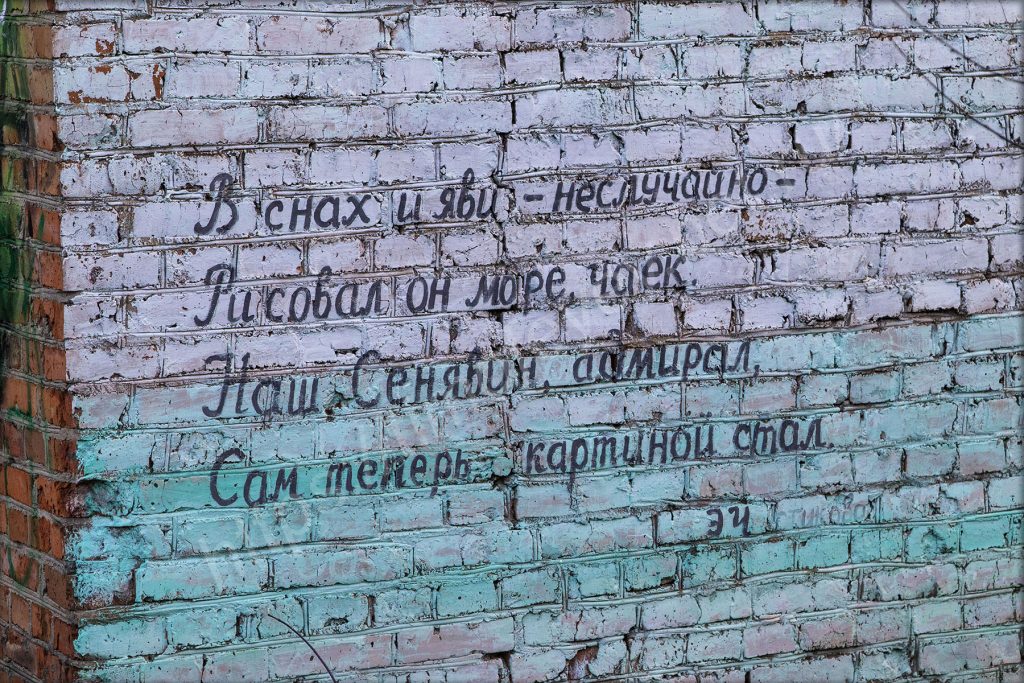 В снах и яви - неслучайно -
Рисовал он море, чаек.
Наш Сенявин, адмирал,
Сам теперь картиной стал.
ЭЧ